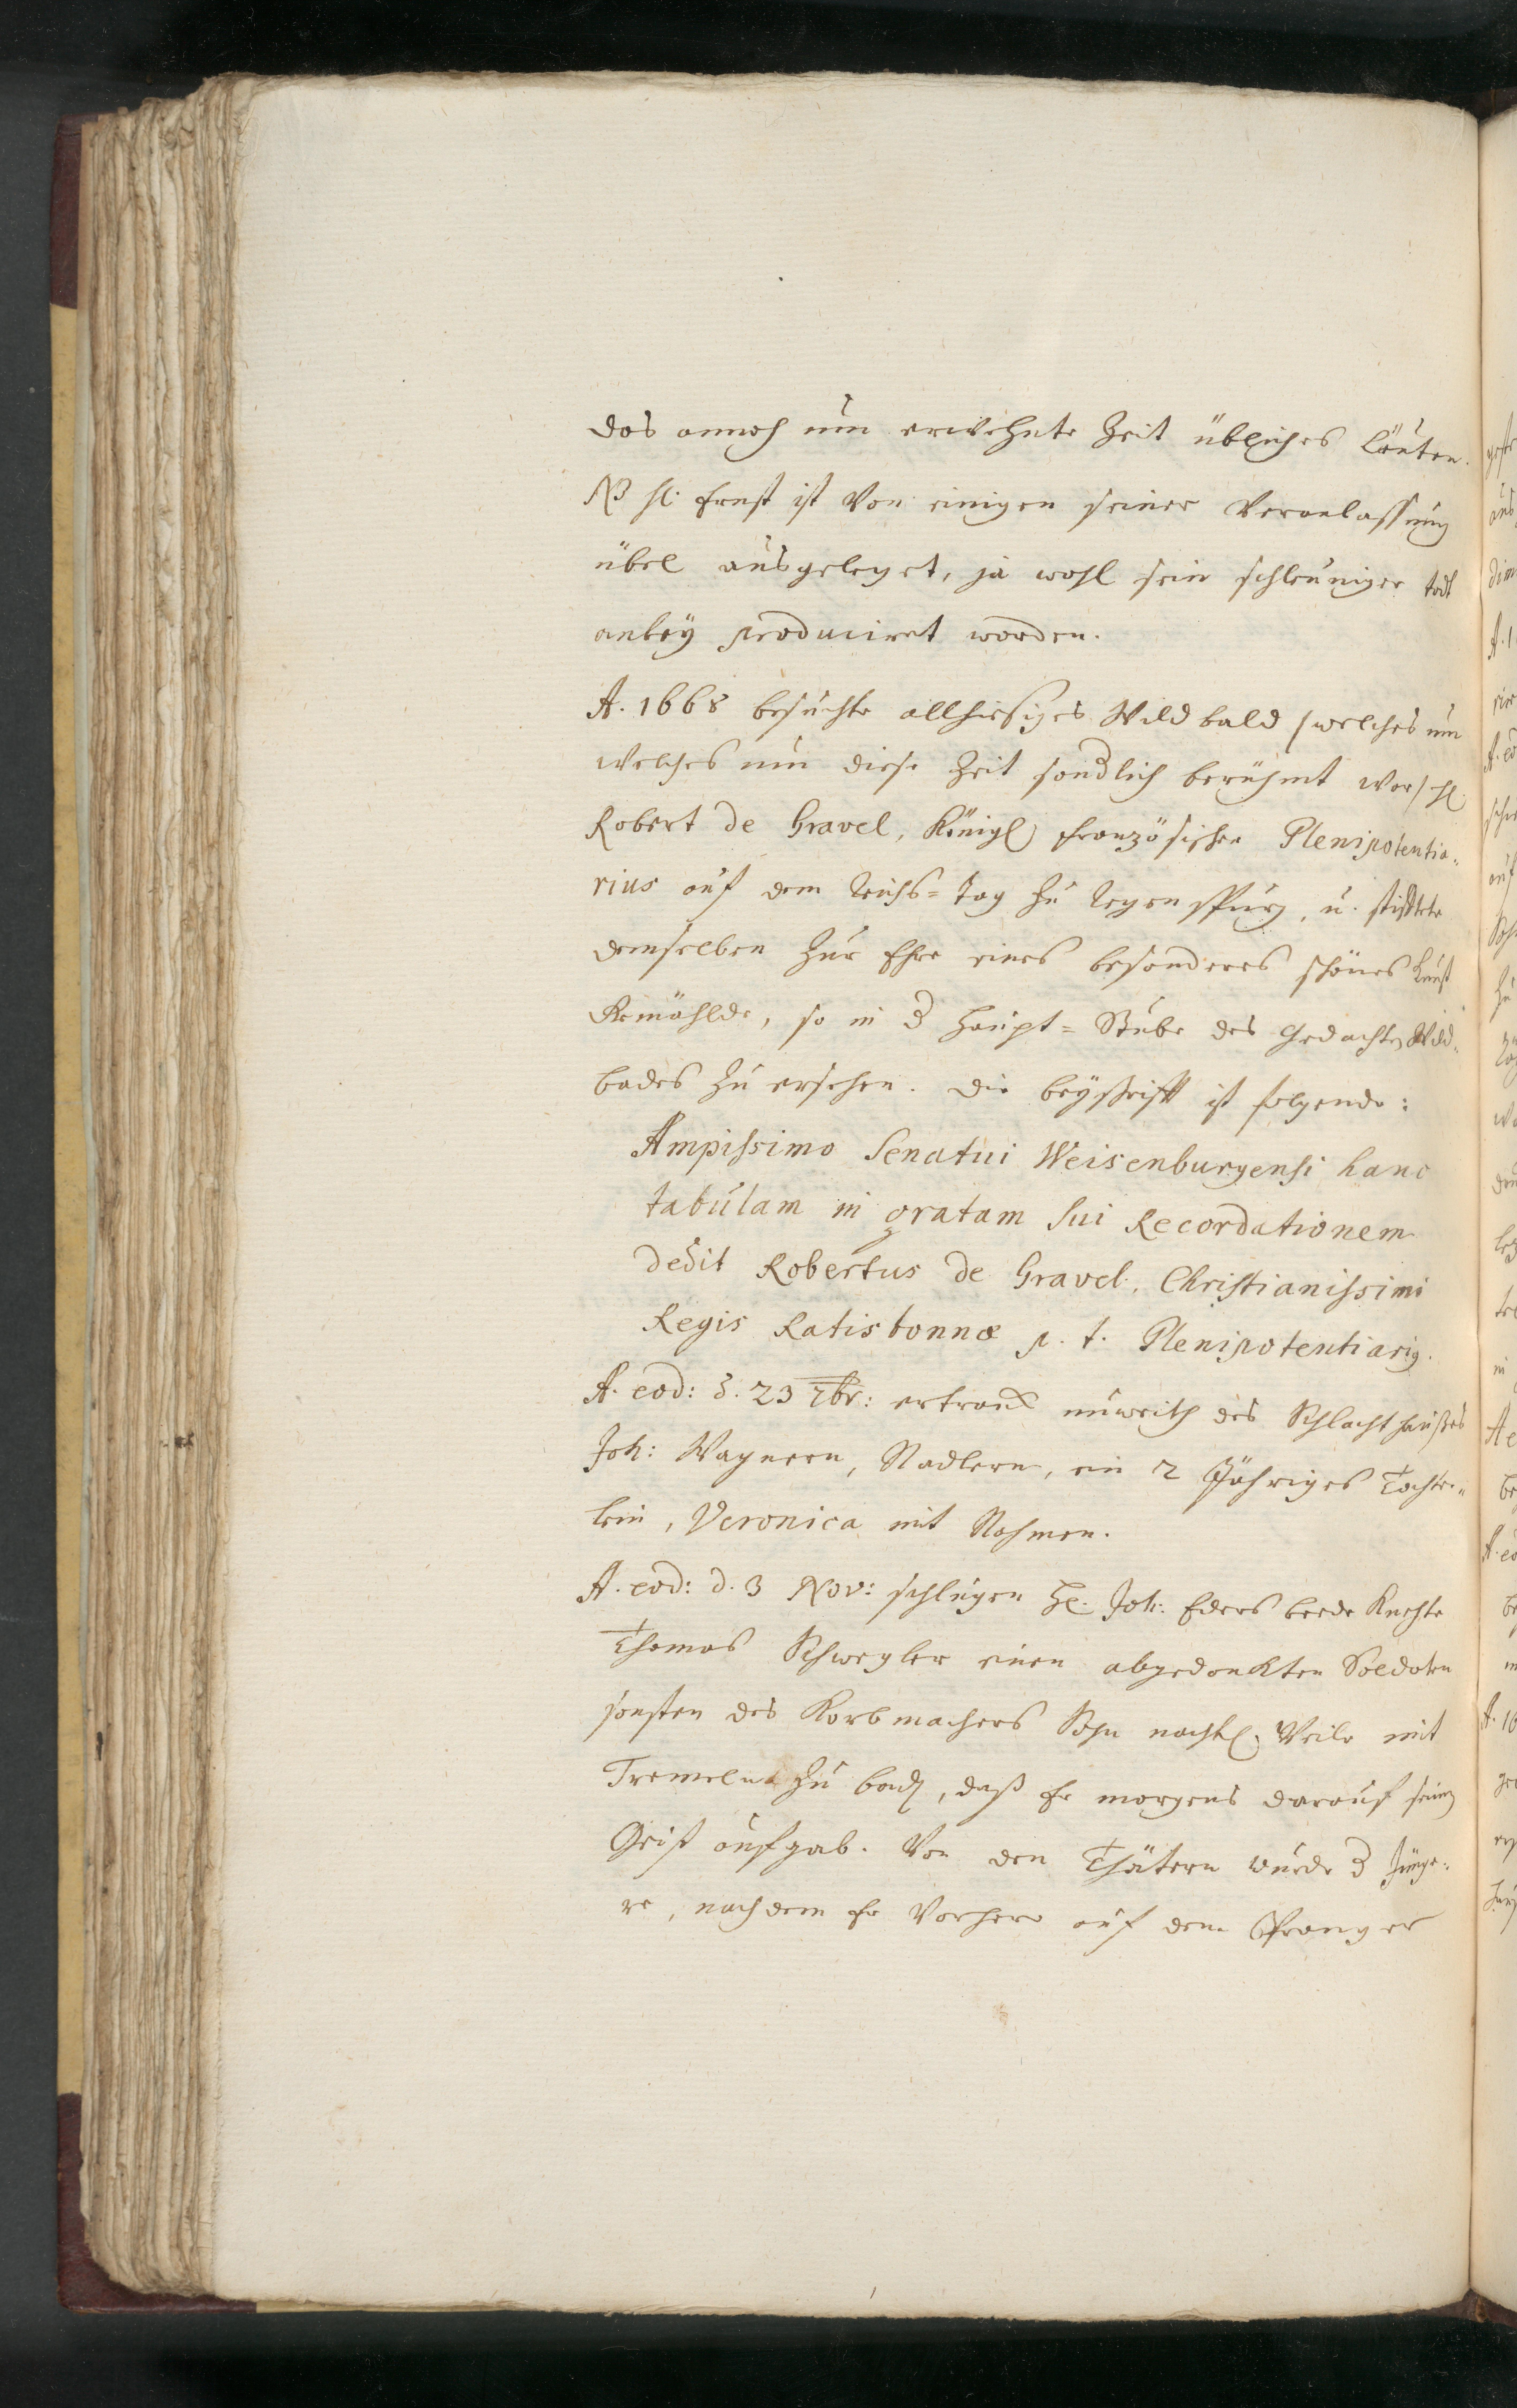 das annoch um erwehnte Zeit übliches Läuten.
NB H. Ernst ist von einigen seiner Veranlassung
übel ausgeleget, ja wohl sein schleuniger todt
anbey produciret worden.
A. 1668 besuchte allhiesiges Wildbald /welches um
welches um diese Zeit sondlich berühmt war/ H.
Robert de Gravel, Königl. französischer Plenipotentia-
rius auf dem Reichs-Tag zu Regenspurg, u. stifftete
demselben zur Ehre eines besonderes schönes Kunst
Gemählde, so in d Haupt-Stube des gedachten Wild-
bades zu ersehen. Die beyschrifft ist folgende:
Ampissimo Senatui Weisenburgensi hanc
tabulam in gratam sui Recordationem
dedit Robertus de Gravel, Christianissimi
Regis Ratisbonnæ p. t. Plenipotentiarig.
A. eod: d. 23 7br: ertranck unweith des Schlachthaußes
Joh: Wagnern, Nadlern, ein 2 Jähriges Töchter-
lein, Veronica mit Nahmen.
A. eod: d. 3 Nov: schlugen H. Joh: Eders beede Knechte
Thomas Schwegler einen abgedanckten Soldaten
sonsten des Korbmachers Sohn nachtl. Weile mit
Tremeln zu bod, daß Er morgens darauf seinen
Geist aufgab. Von den Thätern wurde d Jünge-
re, nachdem Er vorhero auf dem Pranger